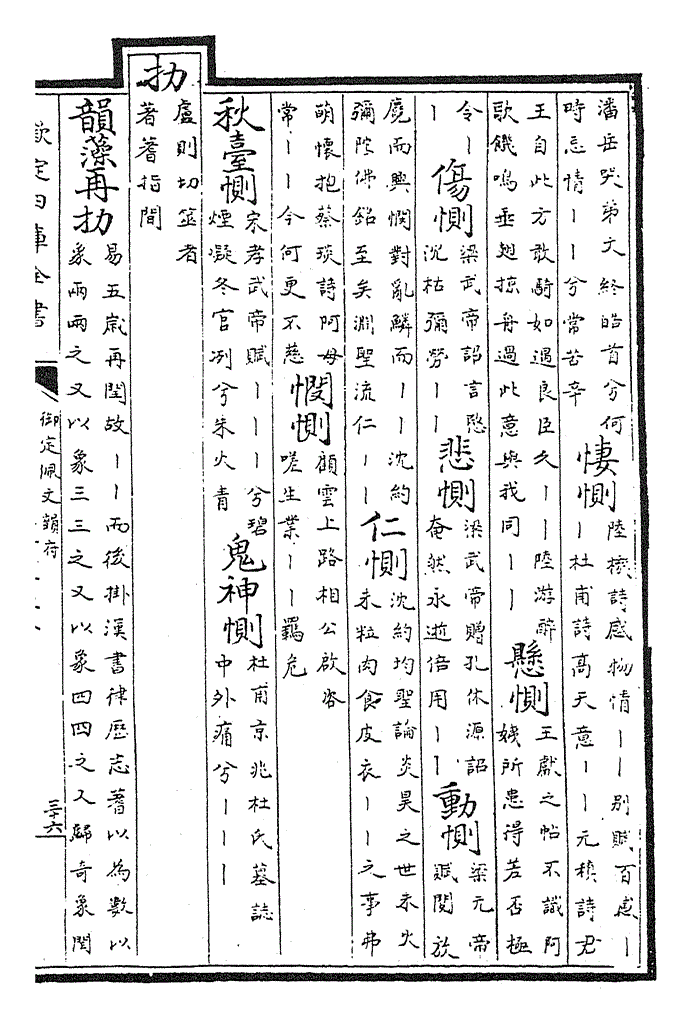 潘岳哭弟文終皓首兮何
時忘情丨丨兮常苦辛
悽惻
陸機詩感物情丨丨別賦百感丨
丨杜甫詩高天意丨丨元稹詩君
王自此方敢騎如遇良臣久丨丨陸游醉
歌饑鳴垂翅掠舟過此意與我同丨丨
懸惻
王獻之帖不識阿
姨所患得差否極
令丨
丨
傷惻
梁武帝詔言愍
沈枯彌勞丨丨
悲惻
梁武帝贈孔休源詔
奄然永逝倍用丨丨
動惻
梁元帝
賦閔放
麑而興憫對亂鱗而丨丨沈約
彌陀佛銘至矣淵聖流仁丨丨
仁惻
沈約均聖論炎昊之世未火
未粒肉食皮衣丨丨之事弗
萌懷抱蔡琰詩阿母
常丨丨今何更不慈
憫惻
顧雲上路相公啟咨
嗟生業丨丨羈危
秋臺惻
宋孝武帝賦丨丨丨兮碧
煙凝冬官冽兮朱火青
鬼神惻
杜甫京兆杜氏墓誌
中外痛兮丨丨丨
扐
盧則切筮者
著蓍指間
韻藻再扐
易五歲再閏故丨丨而後掛漢書律歷志蓍以為數以
象兩兩之又以象三三之又以象四四之又歸奇象閏
欽定四庫全書
御定佩文韻府
三十六